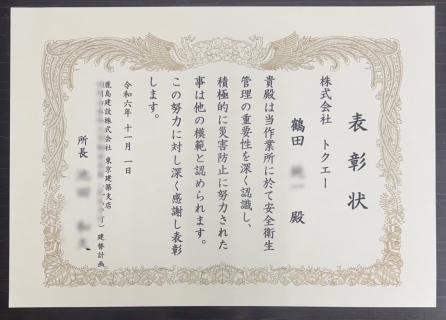 表彰状
株式会社 トクエー
鶴田 殿
貴殿は当作業所に於て安全衛生
管理の重要性を深く認識し、
積極的に災害防止に努力された
事は他の模範と認められます。
この努力に対し深く感謝し表彰
します。
令和六年 十一月 一日
鹿島建設株式会社 東京建築支店
建替計画
所長